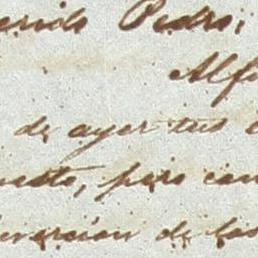 erido Pedro;
Alf
de ayer tus
uesto, pero con
ersion de las